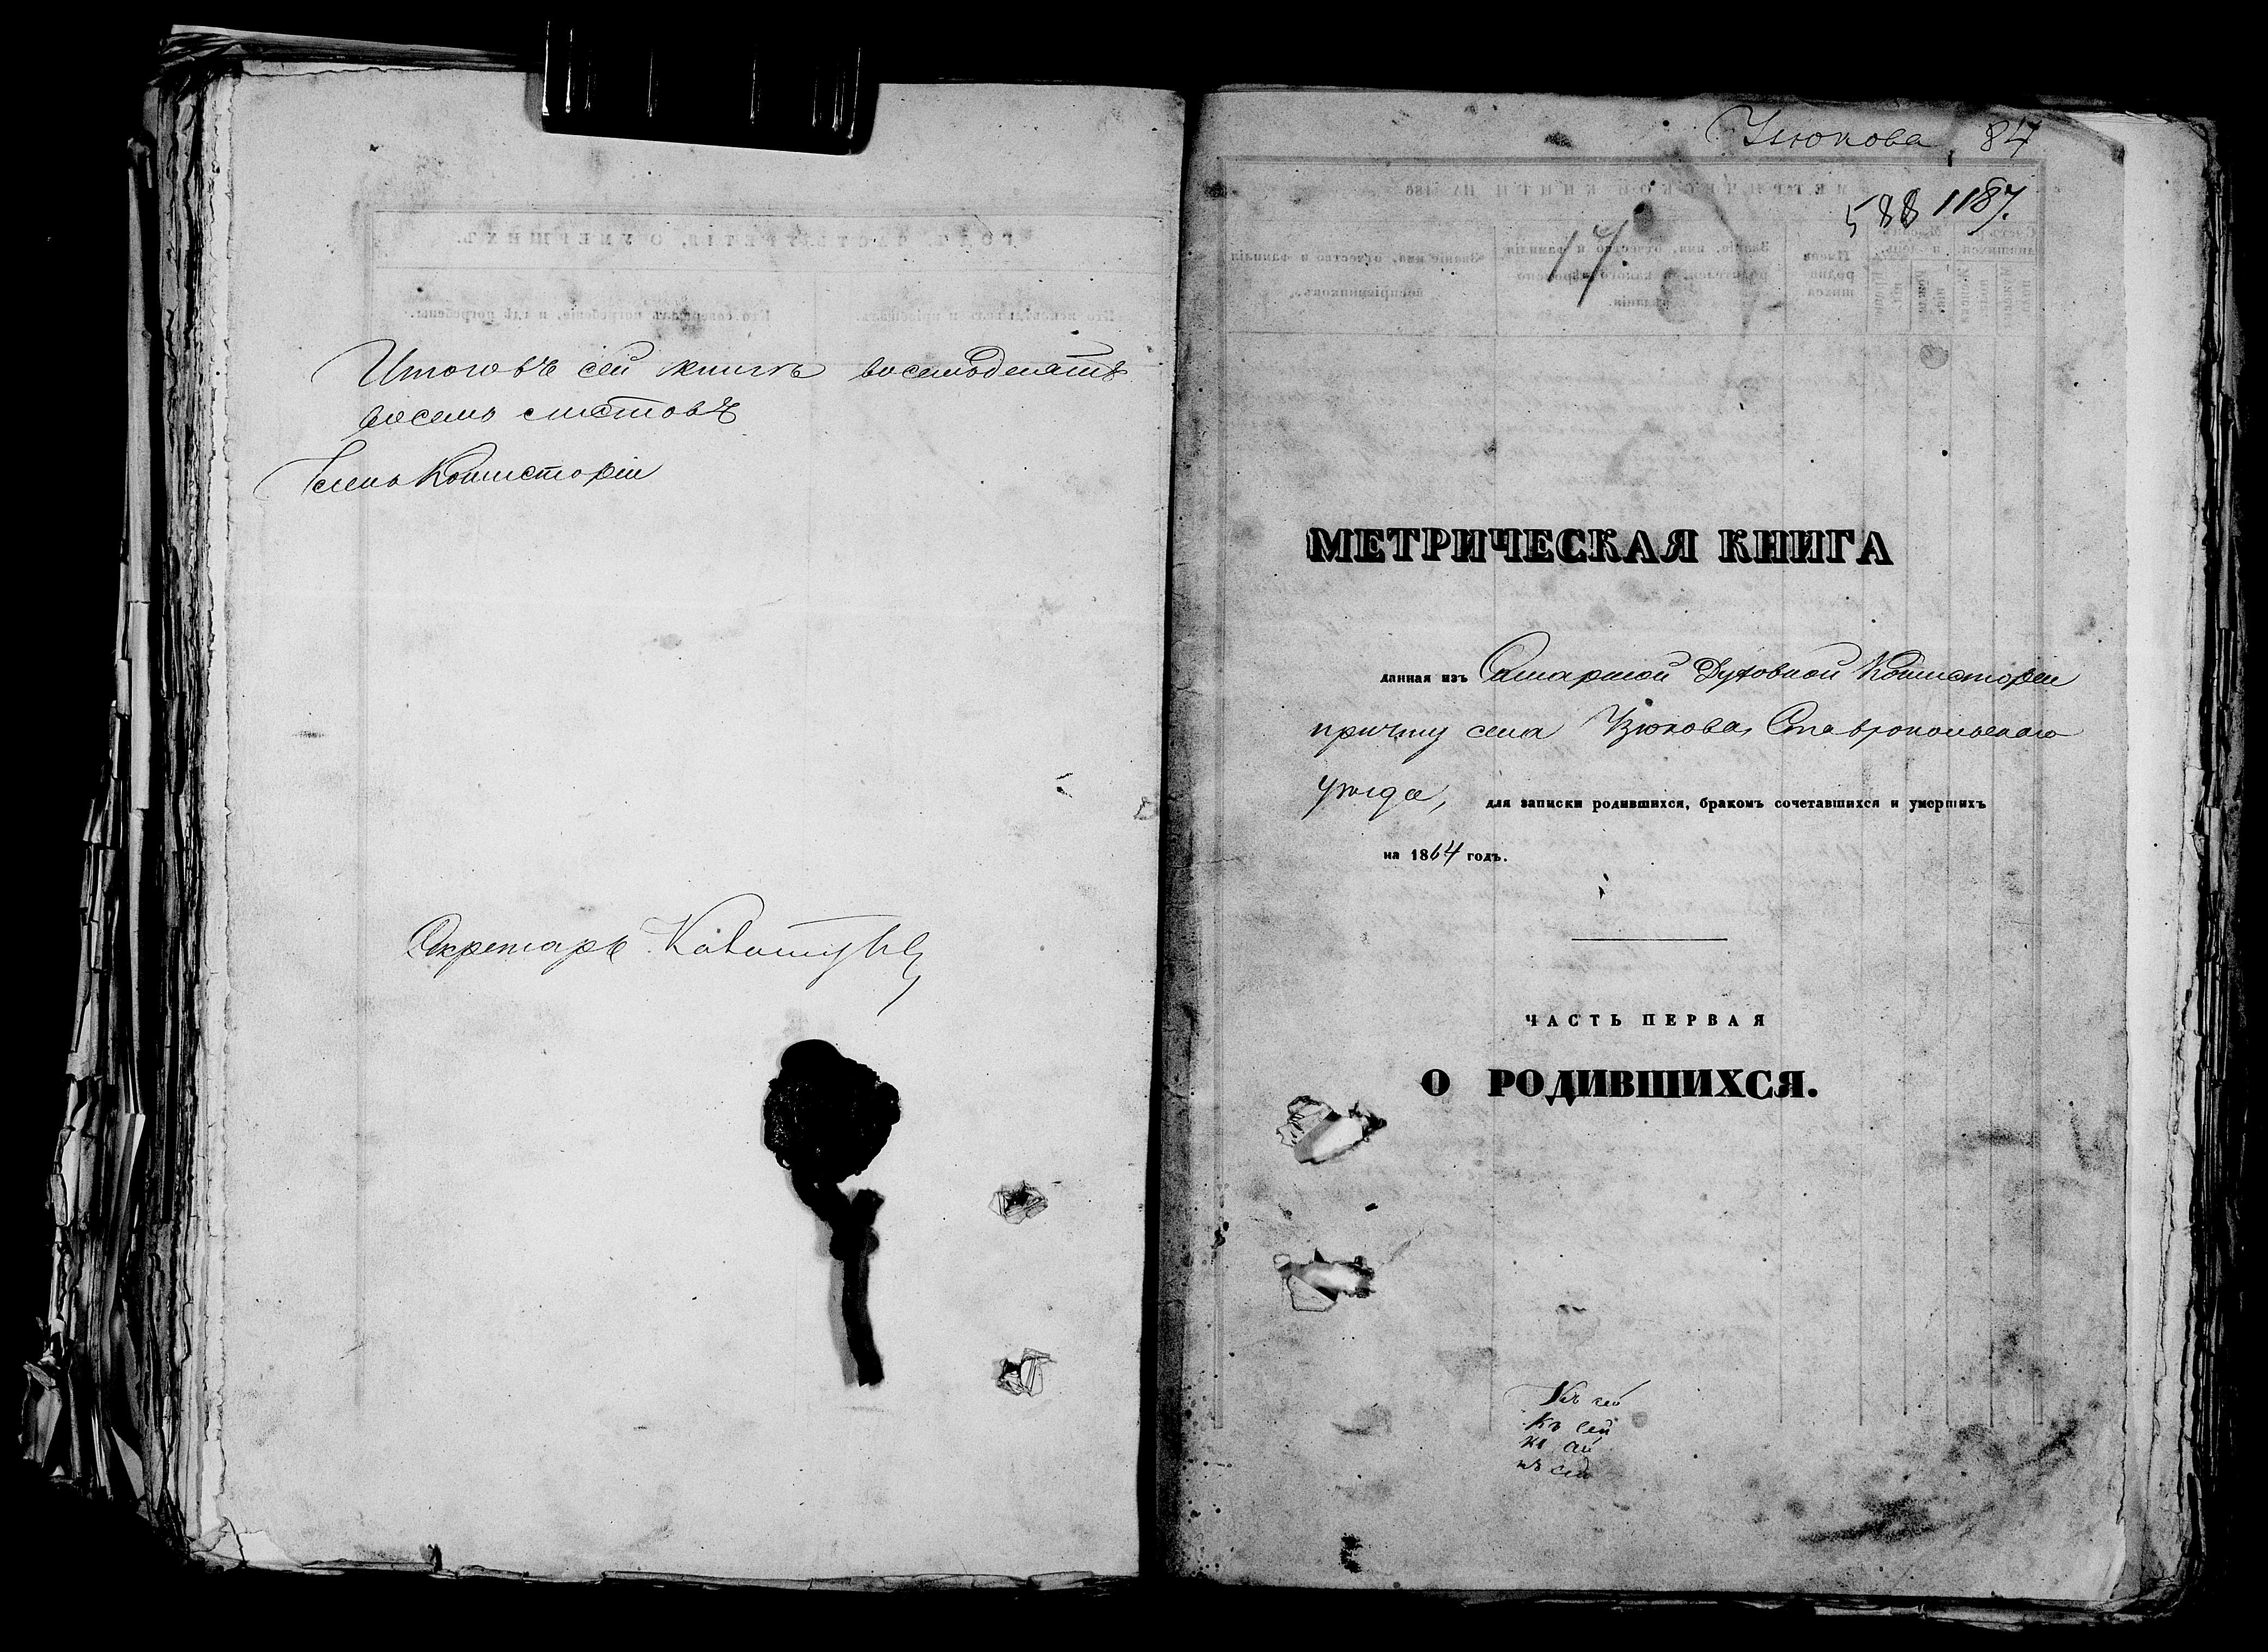 Итого въ сей книгѣ восемьдесятъ
восемь листовъ
Членъ Консисторіи
Секретарь
Узюкова 84
588 1187.
17.
МЕТРИЧЕСКАЯ КНИГА
данная изъ Самарской Духовной Консисторіи
причту села Узюкова, Ставропольскаго
уѣзда, для записки родившихся, бракомъ сочетавшихся и умершихъ
на 1864 годъ.
ЧАСТЬ ПЕРВАЯ
О РОДИВШИХСЯ.
Къ сей
Къ сей
къ сей